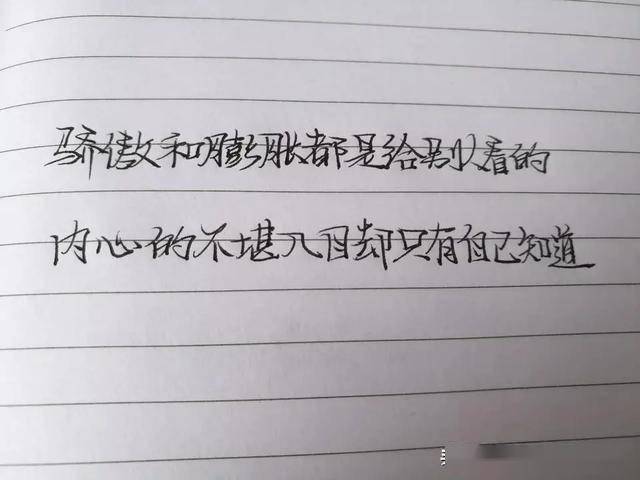 骄傲和膨胀都是给别人看的
内心的不堪入目却只有自己知道